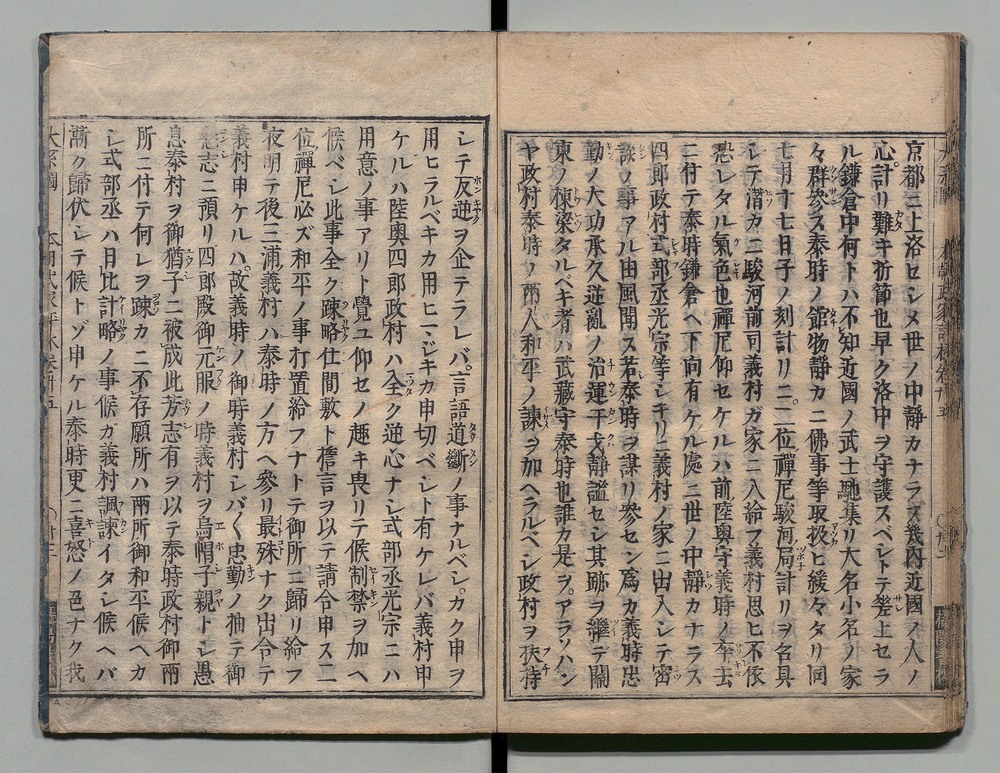 京都ニ上洛セシメ世ノ中靜カナラズ幾内近國ノ人ノ
心計リ難キ折節也早ク洛中ヲ守護スベシトテ差上セラ
ル鎌倉中何トハ不知近國ノ武士馳集リ大名小名ノ家
々群參ス泰時ノ館物靜カニ佛事等取扱ヒ緩々タリ同
七月十七日子ノ刻計リニ二位禪尼駿河局計リヲ名具
シテ潜カニ駿河前司義村ガ家ニ入給フ義村思ヒ不依
恐レタル氣色也禪尼仰セケルハ前陸奥守義時ノ卒去
ニ付テ泰時鎌倉ヘ下向有ケル處ニ世ノ中靜カナラズ
四郎政村式部丞光宗等シキリニ義村ノ家ニ出入シテ密
談ノ事アル由風聞ス若泰時ヲ謀リ參セン爲カ義時忠
勤ノ大功承久逆亂ノ治運干戈靜謐セシ其跡ヲ繼デ關
東ノ棟梁タルベキ者ハ武藏守泰時也誰カ是ヲアラソハン
ヤ政村泰時ノ兩人和平ノ諫ヲ加ヘラルベシ政村ヲ扶持
シテ反逆ヲ企テラレバ言語道斷ノ事ナルベシカク申ヲ
用ヒラルベキカ用ヒマジキカ申切ベシト有ケレバ義村申
ケルハ陸奥四郎政村ハ全ク逆心ナシ式部丞光宗ニハ
用意ノ事アリト覺ユ仰セノ趣キ畏リテ候制禁ヲ加ヘ
候ベシ此事全ク疎略仕間敷ト誓言ヲ以テ請合申ス二
位禪尼必ズ和平ノ事打置給フナトテ御所ニ歸リ給フ
夜明テ後三浦義村ハ泰時ノ方ヘ參リ最殊ナク出合テ
義村申ケルハ故義時ノ御時義村シバ〱忠勤ノ抽テ御
懇志ニ預リ四郎殿御元服ノ時義村ヲ烏帽子親トシ愚
息泰村ヲ御猶子ニ被成此芳志有ヲ以テ泰時政村御兩
所ニ付テ何レヲ疎カニ不存願所ハ兩所御和平候ヘカ
シ式部丞ハ日比計略ノ事候ガ義村諷諫イタシ候ヘバ
漸ク歸伏シテ候トゾ申ケル泰時更ニ喜怒ノ色ナク我